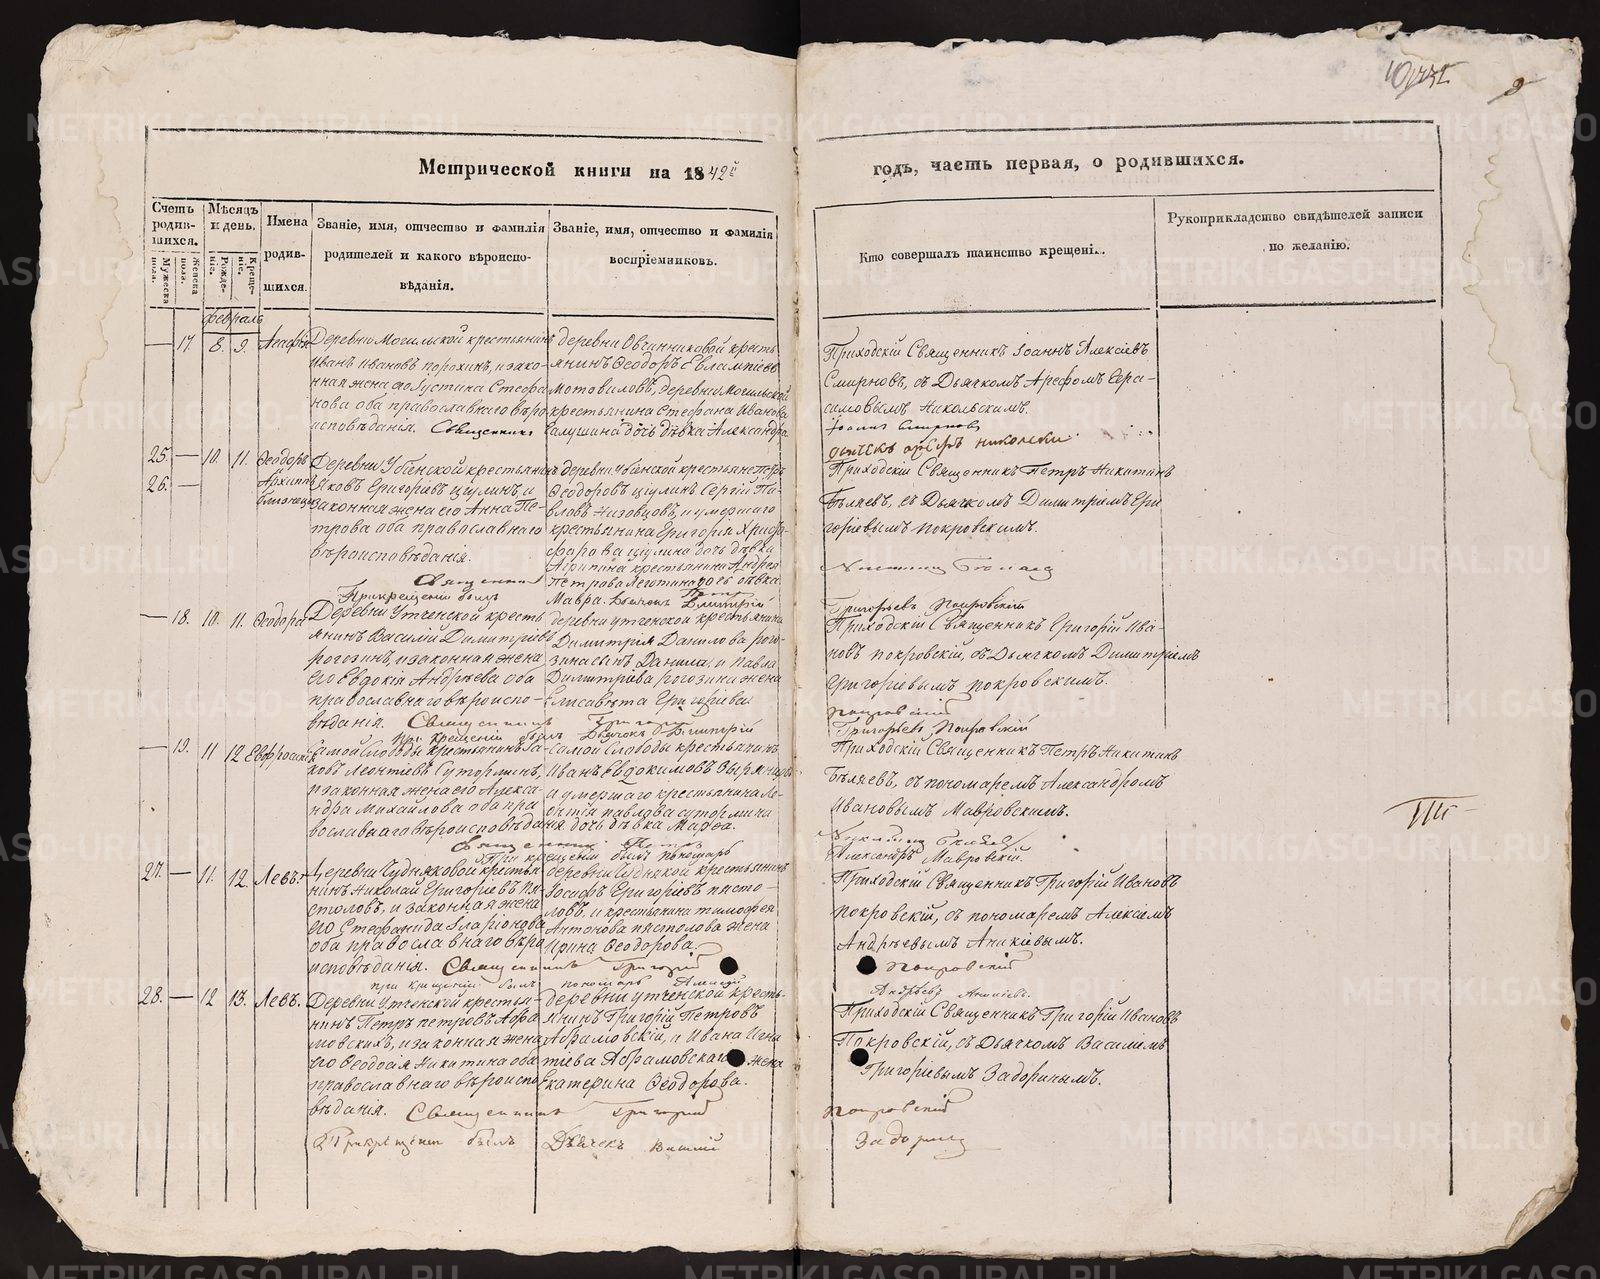 Метрической книги на 1842й
годъ, часть первая, о родившихся.
Счетъ родив-шихся.
Мужеска пола.
Женска пола.
Мѣсяцъ и день.
Рожде-нiе.
Креще-нiе.
Имена родив-шихся.
Званiе, имя, отчество и фамилiя
родителей и какого вѣроиспо-
вѣданiя.
Званiе, имя, отчество и фамилiя
воспрiемниковъ.
Кто совершалъ таинство крещенi
Рукоприкладство свидѣтелей записи
по желанiю.
февраль
17. 8. 9. Агафiя
Деревни Могильской крестьянинъ
Иванъ Ивановъ Порохинъ, и зако-
нная жена Стефа
нова оба православнаго вѣро
исповѣданiя. Священникъ
деревни Овчинниковой кресть
янинъ Ѳеодоръ Евлампiевъ
Мотовиловъ, деревни Могильской
крестьянина Стефана Иванова
дочь дѣвка Александра
Приходскiй Священникъ Iоаннъ Алексiевъ
Смирновъ, съ Дьячкомъ Арефомъ Гера-
симовымъ Никольскимъ.
Iоаннъ Смирновъ
25. 10. 11. Ѳеодоръ
26. Архиппъ
близнецы
Деревни Убiенской крестьянинъ
Яковъ Григорiевъ Цiулинъ, и
законная жена его Анна Пе-
трова оба православнаго
вѣроисповѣданiя.
Священникъ
При крещенiи былъ
деревни Убiенской крестьяне Петръ
Ѳеодоровъ Цiулинъ Сергiй Па-
вловъ Низовцовъ, и умершаго
крестьянина Григорiя Христо-
форова Цiулина дочь дѣвка
Агрипина крестьянина Андрея
Петрова дочь дѣвка
Мавра. Дьячекъ Димитрiй
Приходскiй Священникъ Петръ Никитинъ
Бѣляевъ, съ Дьячкомъ Димитрiемъ Гри
горiевымъ Покровскимъ.
Григорьевъ Покровскiй
18. 10. 11. Ѳеодора
Деревни Утченской кресть
янинъ Василiй Димитрiевъ
Рогозинъ, и законная жена
его Евдокiя Андреева оба
православнаго вѣроиспо-
вѣданiя. Священникъ Григорiй
При крещенiи былъ Дьячокъ Димитрiй
деревни Утченской крестьянина
Димитрiя Данилова Рого-
зина сынъ Данила, и Павла
Димитрiева Рогозина жена
Елисавета Григорiева
Приходскiй Священникъ Григорiй Ива-
новъ Покровскiй, съ Дьячкомъ Димитрiемъ
Григорiевымъ Покровскимъ.
Покровскiй
Григорьевъ Покровскiй
19. 11 12 Евфросинiя
Самой Слободы крестьянинъ Iа-
ковъ Леонтiевъ Суторминъ,
и законная жена его Алекса-
ндра Михайлова оба пра
вославнаго вѣроисповѣданiя
Священникъ Петръ
При крещенiи былъ пономарь
Самой Слободы крестьянинъ
Иванъ Евдокимовъ Зыряновъ
и умершаго крестьянина Ле-
онтiя Павлова Сутормина
дочь дѣвка Марѳа.
Приходскiй Священникъ Петръ Никитинъ
Бѣляевъ, съ пономаремъ Александромъ
Ивановымъ Мавровскимъ.
Александръ Мавровскiй.
27. 11. 12. Левъ.
Деревни Чудняковой крестья
нинъ Николай Григорiевъ Пи-
столовъ, и законная жена
его Стефанида Иларiонова
оба православнаго вѣро
исповѣданiя. Священникъ Григорiй
при крещенiи былъ пономарь Алексiй
деревни Чудняковой крестьянинъ
Iосифъ Григорiевъ Писто-
ловъ, и крестьянина Тимофея
Антонова Пистолова жена
Ирина Ѳеодорова.
Приходскiй Священникъ Григорiй Ивановъ
Покровскiй, съ пономаремъ Алексiемъ
Андрѣевымъ Аникiевымъ.
Покровскiй
Андрѣевъ Аникiевъ.
28. 12 13. Левъ.
Деревни Утченской крестья-
нинъ Петръ Петровъ Абра-
мовскихъ, и законная жена
его Ѳеодосiя Никитина оба
православнаго вѣроиспо
вѣданiя. Священникъ Григорiй
При крещенiи былъ Дьячекъ Василiй
деревни Утченской кресть-
янинъ Григорiй Петровъ
Абрамовскiй, и Ивана Игна
тiева Абрамовскаго жена
Екатерина Ѳеодорова.
Приходскiй Священникъ Григорiй Ивановъ
Покровскiй, съ Дьячкомъ Василiемъ
Григорiевымъ Задоринымъ.
Покровскiй
Задоринъ